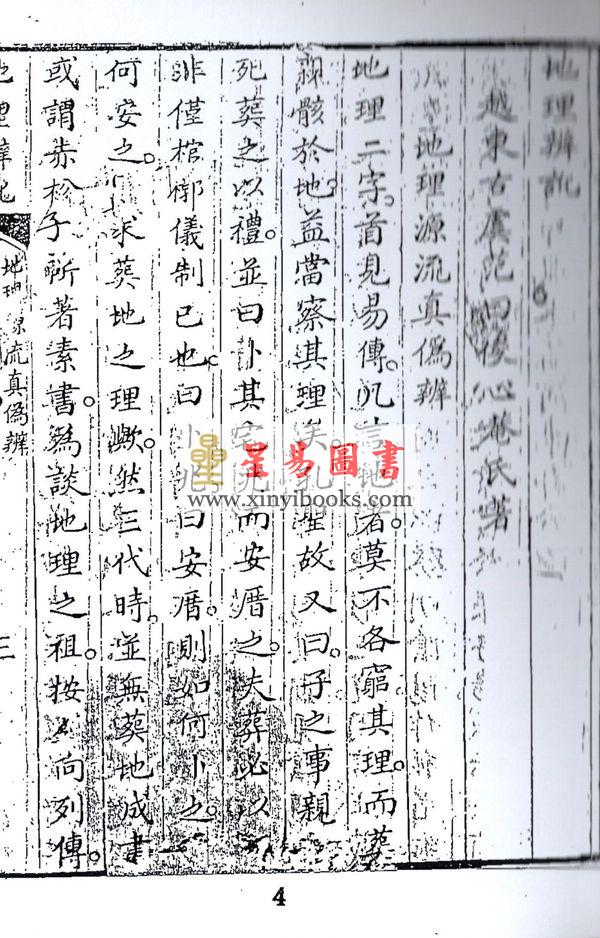 地理辨訛
越東古虞范曰俊心菴氏著
地理源流真僞辨
地理二字。首見易傳。凡言地者。莫不各窮其理。而葬
親骸於地。益當察其理矣。孔聖故又曰。子之事親
死葬之以禮。並曰卜其宅兆而安厝之。夫葬必以
非僅棺槨儀制已也。曰兆曰安厝。則如何卜之。
何安之。求葬地之理歟。然三代時。並無葬地成書
或謂赤松子所著素書。爲談地理之祖。按向列傳。
地理辨訛
地理源流真僞辨
三
星易圖書
www.xinyibooks.com
4